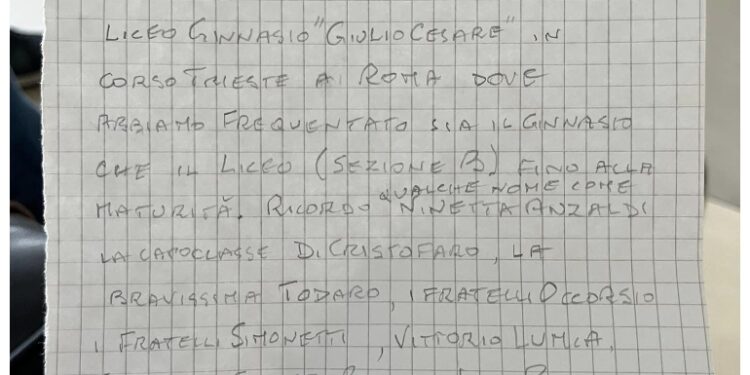 LICEO GINNASIO "GIULIO CESARE" IN
CORSO TRIESTE A ROMA DOVE
ABBIAMO FREQUENTATO SIA IL GINNASIO
CHE IL LICEO (SEZIONE B) FINO ALLA
QUALCHE NOME COME
MATURITÀ. RICORDO NINETTA ANZALDI
LA CAPOCLASSE DI CRISTOFARO, LA
BRAVISSIMA TODARO, I FRATELLI OCCORSIO
I FRATELLI SIMONETTI, VITTORIO LUMIA,